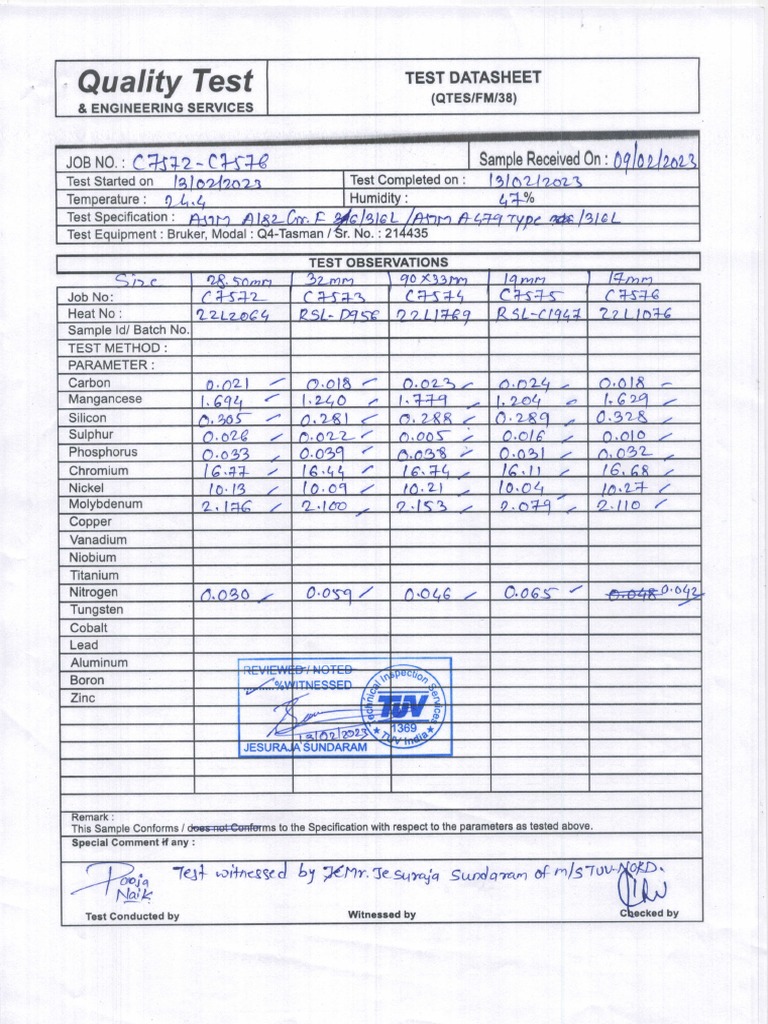 Quality Test
& ENGINEERING SERVICES
TEST DATASHEET
(QTES/FM/38)
JOB NO. : C7572-C7576 Sample Received On : 09/02/2023
Test Started on 13/02/2023 Test Completed on : 13/02/2023
Temperature : 24.4 Humidity : 47%
Test Specification : ASTM A182 Gr. F 316/316L /ASTM A479 Type 316/316L
Test Equipment : Bruker, Modal : Q4-Tasman / Sr. No. : 214435
TEST OBSERVATIONS
Size 28.50mm 32mm 90X33mm 19mm 17mm
Job No: C7572 C7573 C7574 C7575 C7576
Heat No : 22L2064 RSL-D956 22L1769 RSL-C1947 22L1076
Sample Id/ Batch No.
TEST METHOD :
PARAMETER :
Carbon 0.021 0.018 0.023 0.024 0.018
Mangancese 1.694 1.240 1.779 1.204 1.629
Silicon 0.305 0.281 0.288 0.289 0.328
Sulphur 0.026 0.022 0.005 0.016 0.010
Phosphorus 0.033 0.039 0.038 0.031 0.032
Chromium 16.77 16.44 16.74 16.11 16.68
Nickel 10.13 10.09 10.21 10.04 10.27
Molybdenum 2.176 2.100 2.153 2.079 2.110
Copper
Vanadium
Niobium
Titanium
Nitrogen 0.030 0.059 0.046 0.065 0.048 0.042
Tungsten
Cobalt
Lead
Aluminum
Boron
Zinc
REVIEWED / NOTED
......%WITNESSED
13/02/2023
JESURAJA SUNDARAM
Technical Inspection Services
TUV
1369
TUV India
Remark :
This Sample Conforms / does not Conforms to the Specification with respect to the parameters as tested above.
Special Comment if any :
Test witnessed by Mr. Jesuraja Sundaram of M/S TUV-NORD.
Pooja
Naik
Test Conducted by Witnessed by Checked by